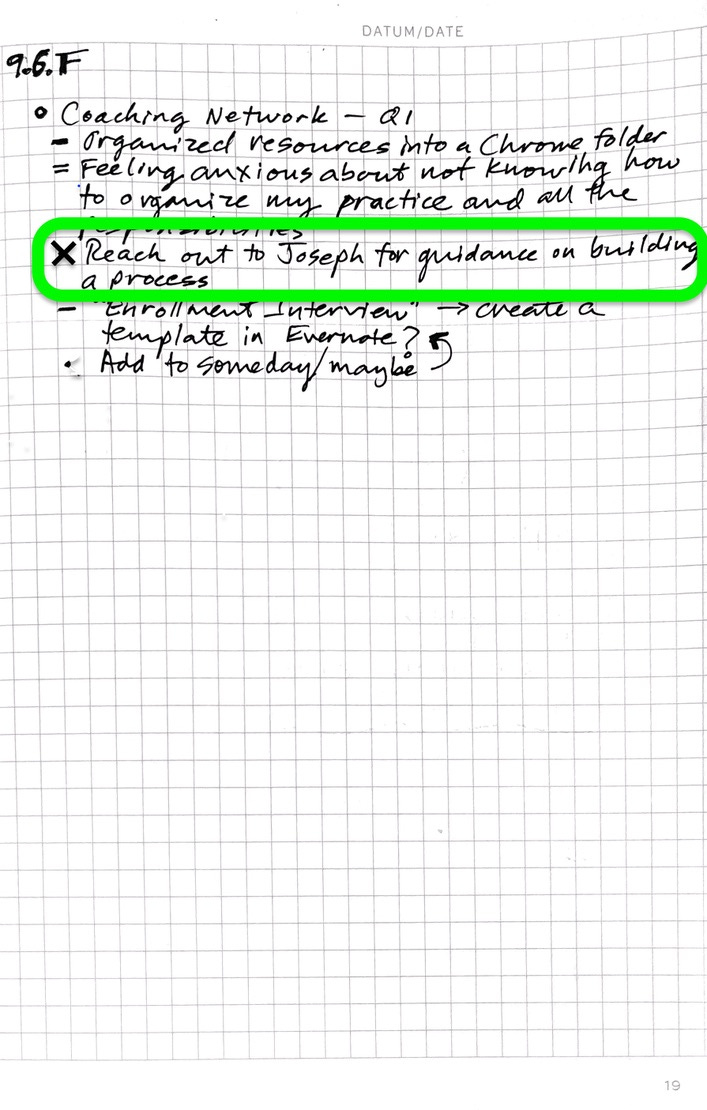 DATUM/DATE
9.6.F
o Coaching Network – Q1
– Organized resources into a Chrome folder
= Feeling anxious about not knowing how
to organize my practice and all the
responsibilities
× Reach out to Joseph for guidance on building
a process
– "Enrollment Interview" → create a
template in Evernote?
• Add to someday/maybe
19